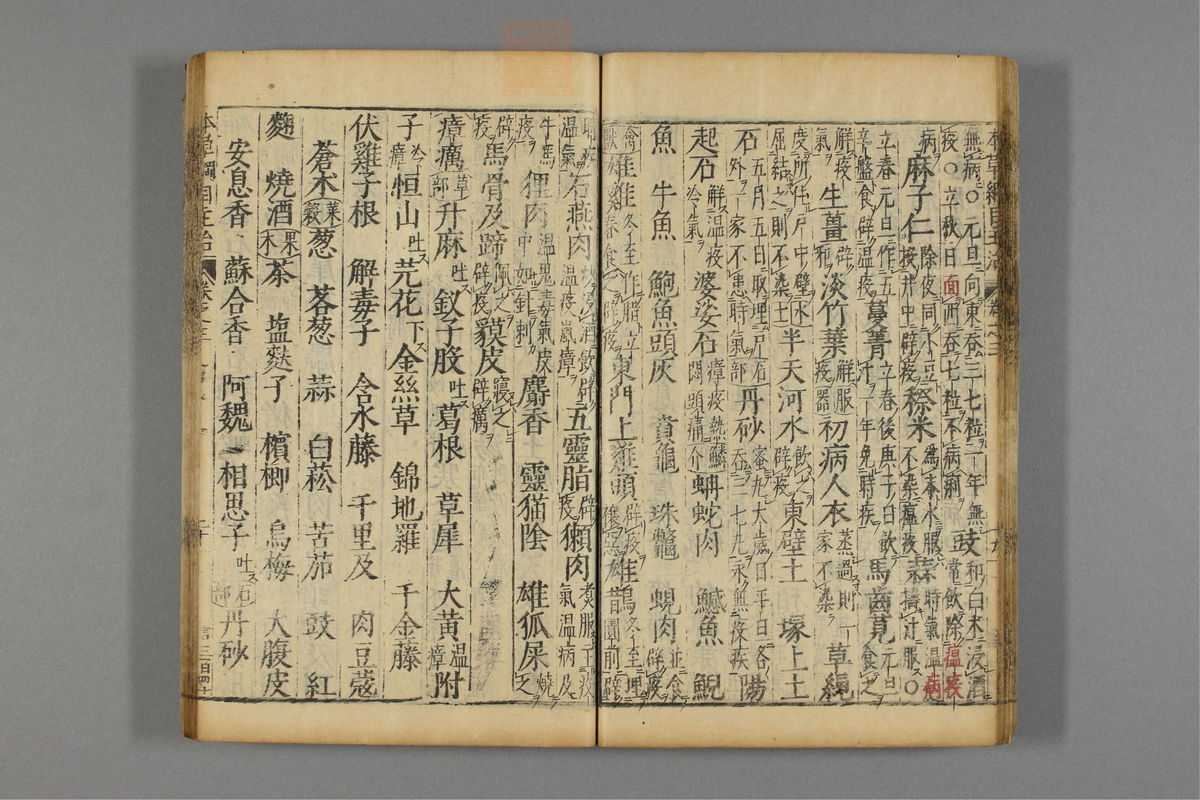 無病○元旦向東吞三七粒一年無 豉和白木浸酒
疫○立秋日面西吞七粒不病痢 常飲除瘟疫
病 麻子仁除夜同小豆 投井中辟疫 穄米為末水服 不染瘟疫 蒜時氣溫 擣汁服○
立春元旦作五辛盤食辟温疫 蔓菁立春後庚子日飲汁一年免時疾 馬齒莧元旦食之
解疫氣 生薑辟邪 淡竹葉解疫 初病人衣蒸過則一家不染 草繩
度所住戶中壁屈結之則不染 土 半天河水飲之辟疫 東壁土 塚上土
石五月五日取埋戶外一家不患時氣 丹砂蜜丸太歲日平旦各吞三七丸永無疫疾 陽
起石解温疫冷氣 婆娑石瘴疫熱悶頭痛 蚺蛇肉 鱁魚 鯢
魚 牛魚 鮑魚頭灰 賁龜 珠鼈 蜆肉並食辟疫
雄雞冬至作腊立春食之辟疫 東門上雞頭辟疫禳惡 雄鵲冬至埋圊前辟
時疾温氣 石燕肉炒浸酒飲辟温疫嵐瘴 五靈脂辟疫 獺肉煮服主疫氣温病及
牛馬疫 狸肉温鬼毒氣皮中如針刺 麝香 靈猫陰 雄狐屎燒之
辟疫 馬骨及蹄佩之辟疫 貘皮寢之辟癘
瘴癘 草部 升麻吐 釵子股吐 葛根 草犀 大黄温瘴 附
子冷瘴 恒山吐 芫花下 金絲草 錦地羅 千金藤
伏雞子根 解毒子 含水藤 千里及 肉豆蔻
蒼木 菜穀 葱 茖葱 蒜 白菘 苦茄 豉 紅
麴 燒酒 果木 茶 塩麩子 檳榔 烏梅 大腹皮
安息香 蘇合香 阿魏 相思子吐 石部 丹砂